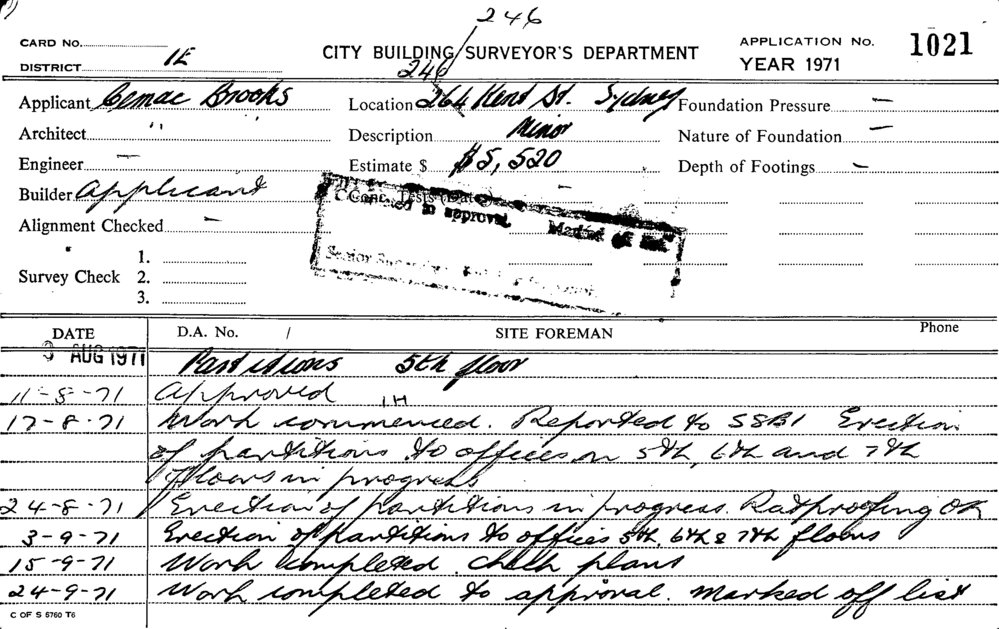 246
CARD No.
DISTRICT 1E
CITY BUILDING SURVEYOR'S DEPARTMENT
246
APPLICATION No. 1021
YEAR 1971
Applicant Cemac Brooks
Location 264 Kent St. Sydney
Foundation Pressure —
Architect " "
Description Minor
Nature of Foundation —
Engineer —
Estimate $ $5,520
Depth of Footings —
Builder Applicant
Conc. Tests (Date) —
to approval. Marked off list
Alignment Checked —
Senior
Survey Check 1.
2.
3.
DATE D.A. No. / SITE FOREMAN Phone
3 AUG 1971 Partitions 5th floor
11-8-71 Approved 1H
17-8-71 Work commenced. Reported to SSBI Erection
of partitions to offices on 5th, 6th and 7th
floors in progress
24-8-71 Erection of partitions in progress. Ratproofing OK
3-9-71 Erection of partitions to offices 5th, 6th & 7th floors
15-9-71 Work completed. check plans
24-9-71 Work completed to approval. Marked off list
C OF S 5760 T6